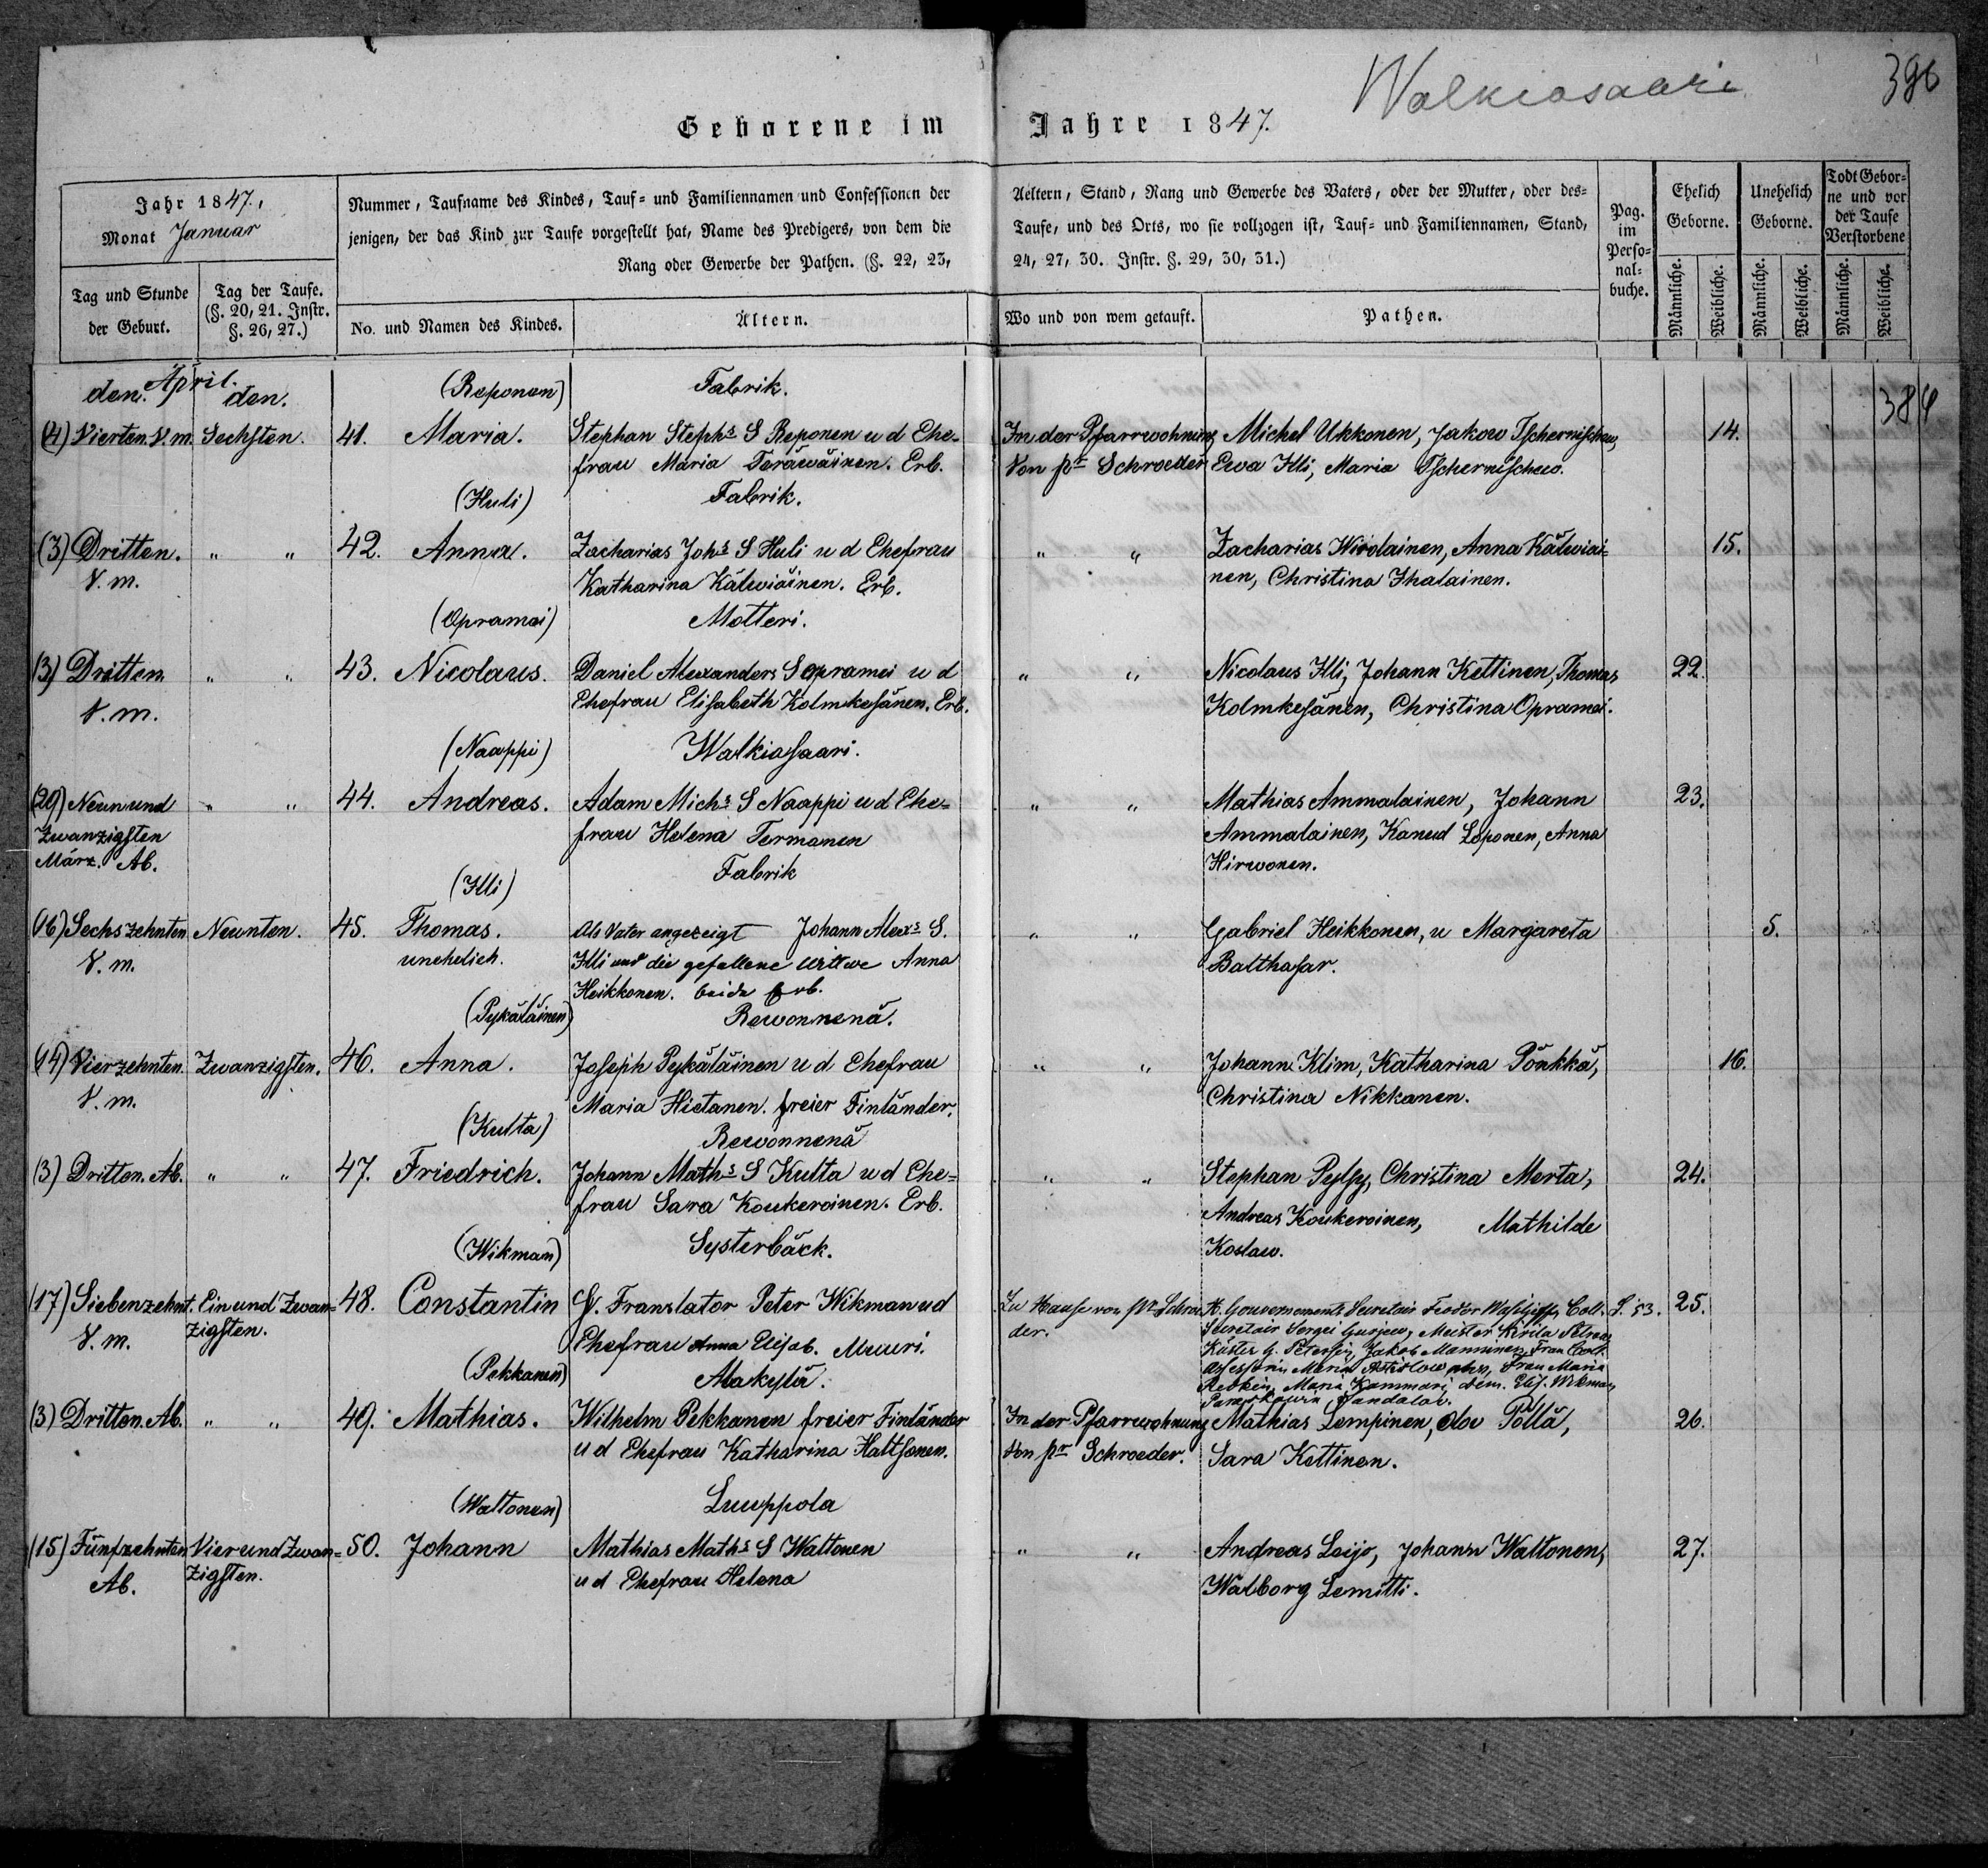 Walkiasaari
396
Geborene im Jahre 1847.
Jahr 1847,
Monat Januar
Nummer, Taufname des Kindes, Tauf- und Familiennamen und Confessionen der Aeltern, Stand, Rang und Gewerbe des Vaters, oder der Mutter, oder des-
jenigen, der das Kind zur Taufe vorgestellt hat, Name des Predigers, von dem die Taufe, und des Orts, wo sie vollzogen ist, Tauf- und Familiennamen, Stand,
Rang oder Gewerbe der Pathen. (§. 22, 23, 24, 27, 30. Instr. §. 29, 30, 31.)
Pag.
im
Perso-
nal-
buche.
Ehelich
Geborne.
Unehelich
Geborne.
Todt Gebor-
ne und vor
der Taufe
Verstorbene
Tag und Stunde
der Geburt.
Tag der Taufe.
(§. 20, 21. Instr.
§. 26, 27.)
No. und Namen des Kindes.
Ältern.
Wo und von wem getauft.
Pathen.
Männliche.
Weibliche.
Männliche.
Weibliche.
Männliche.
Weibliche.
April.
den. den.
384
(Reponen) Fabrik.
(4) Vierten. V. m. Sechsten. 41. Maria. Stephan Stephs S Reponen u d Ehe- In der Pfarrwohnung Michel Ukkonen, Jakow Tschernischew, 14.
frau Maria Teräwäinen. Erb. Von pr Schroeder Ewa Illi, Maria Tschernischew.
(Huli) Fabrik.
(3) Dritten. " " 42. Anna. Zacharias Johs S Huli u d Ehefrau " " Zacharias Wirolainen, Anna Kälwiäi- 15.
V. m. Katharina Kälwiäinen. Erb. nen, Christina Ihalainen.
(Opramei) Motteri.
(3) Dritten " " 43. Nicolaus. Daniel Alexanders S Opramei u d " " Nicolaus Illi, Johann Kettinen, Thomas 22.
V. m. Ehefrau Elisabeth Kolmkesänen. Erb. Kolmkesänen, Christina Opramei.
(Naappi) Walkiasaari.
(29) Neun und " " 44. Andreas. Adam Michs S Naappi u d Ehe- " " Mathias Ammalainen, Johann 23.
Zwanzigsten frau Helena Termonen Ammalainen, Kanud Loponen, Anna
März. Ab. Hirwonen.
(Illi) Fabrik
(16) Sechszehnten Neunten. 45. Thomas. Als Vater angezeigt Johann Alexs S. " " Gabriel Heikkonen, u Margareta 5.
V. m. unehelich. Illi und die gefallene Wittwe Anna Balthasar.
Heikkonen. beide Erb.
(Pykäläinen) Rewonnenä.
(14) Vierzehnten. Zwanzigsten. 46. Anna. Joseph Pykäläinen u d Ehefrau " " Johann Klim, Katharina Pönkkä, 16.
V. m. Maria Hietanen. freier Finländer. Christina Nikkanen.
(Kutta) Rewonnenä
(3) Dritten. Ab. " " 47. Friedrich. Johann Maths S Kutta u d Ehe- " " Stephan Pylsy, Christina Merta, 24.
frau Sara Koukeroinen. Erb. Andreas Koukeroinen, Mathilde
Koslow.
(Wikman) Systerbäck.
(17) Siebenzehnt. Ein und Zwan- 48. Constantin Translator Peter Wikman u d Zu Hause von pr Schroe- K. Gouvernements Secretair Feodor Coll. S. 53. 25.
V. m. zigsten. Ehefrau Anna Elisab. Muuri. der. Secretair Sergei Gurjew, Meister Kirila
Küster G. Petersen, Jakob Manninen, Frau Coll.
Assessorin Maria Frau Maria
Maria Kammari, Elis. Wikman
(Pekkanen) Alakylä.
(3) Dritten. Ab. " " 49. Mathias. Wilhelm Pekkanen freier Finländer In der Pfarrwohnung Mathias Lempinen, Olov Pöllä, 26.
u d Ehefrau Katharina Haltsonen. Von pr Schroeder. Sara Kettinen.
(Wattonen) Luuppola
(15) Fünfzehnten Vier und Zwan- 50. Johann Mathias Maths S Wattonen " " Andreas Leijo, Johann Wattonen, 27.
Ab. zigsten. u d Ehefrau Helena Walborg Lemitti.